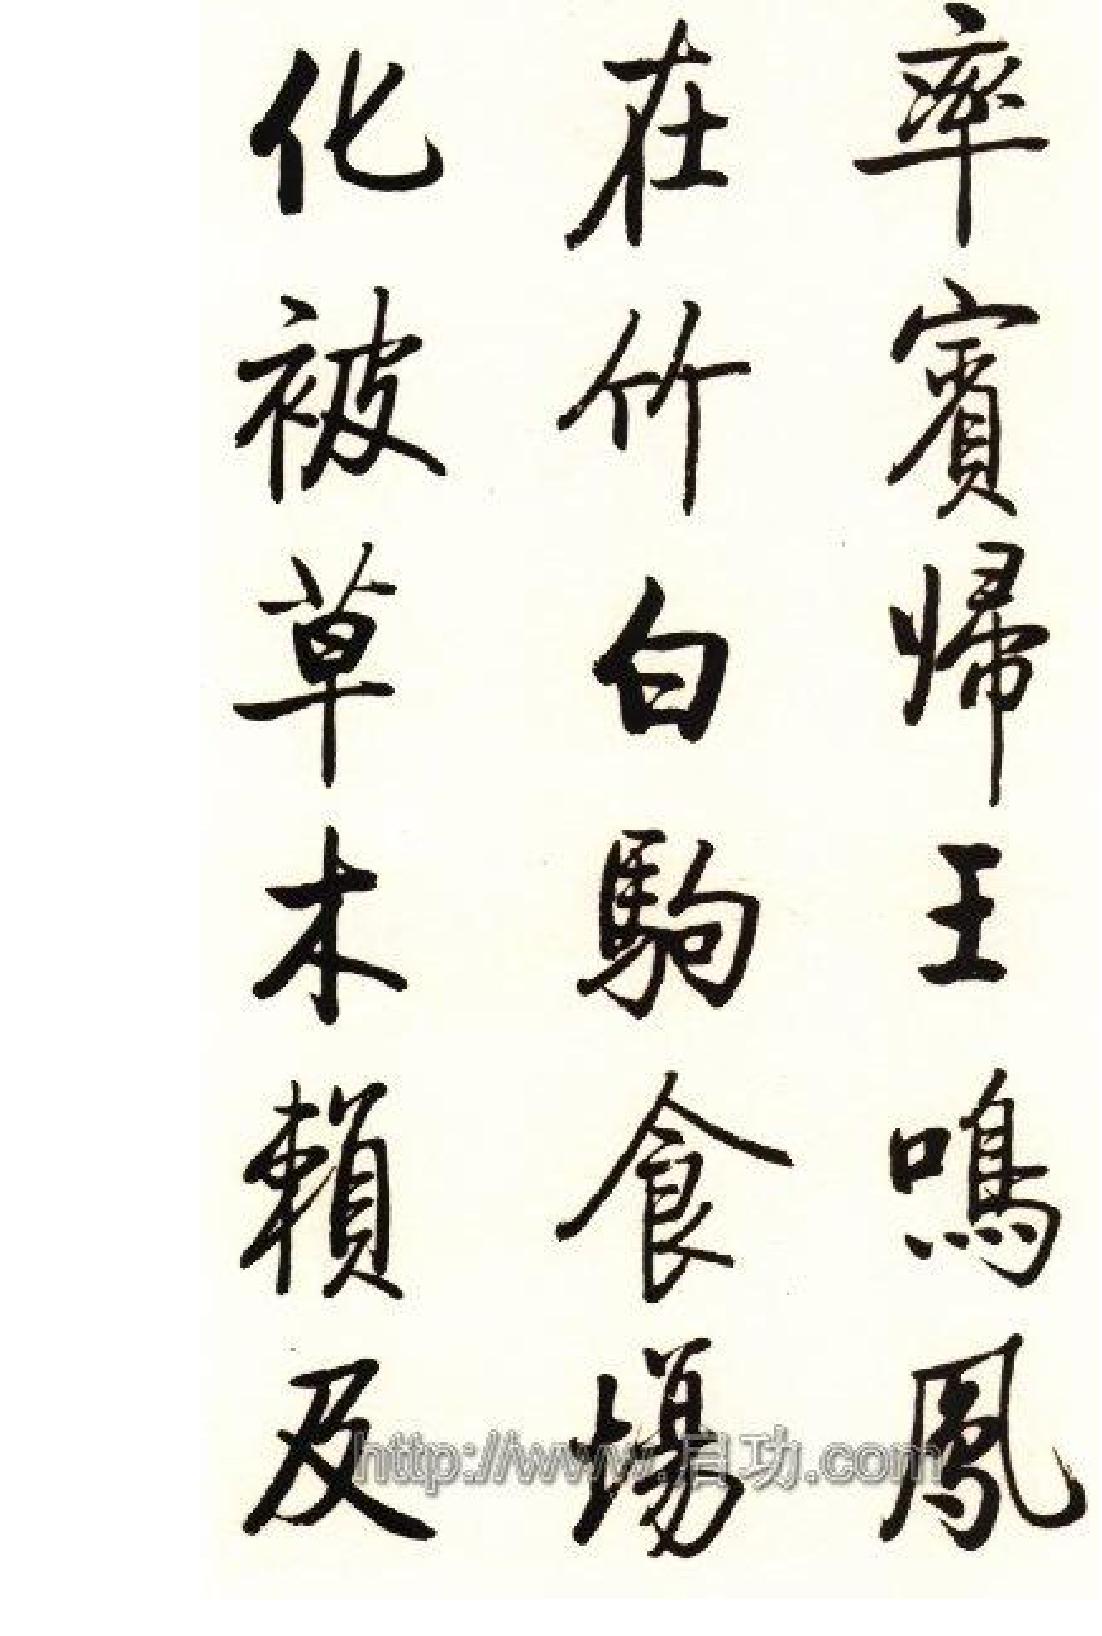 率賓歸王鳴鳳
在竹白駒食場
化被草木賴及
http://www.启功.com